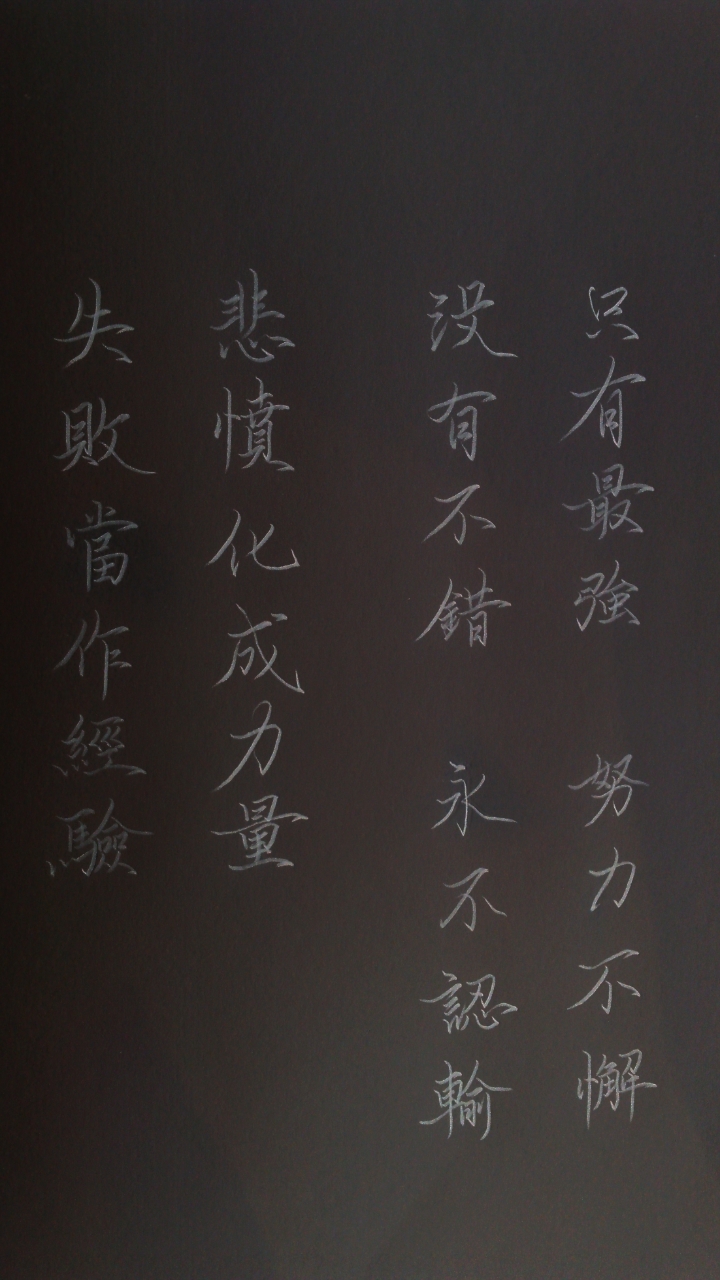 只有最強 努力不懈
没有不錯 永不認輸
悲憤化成力量
失敗當作經驗